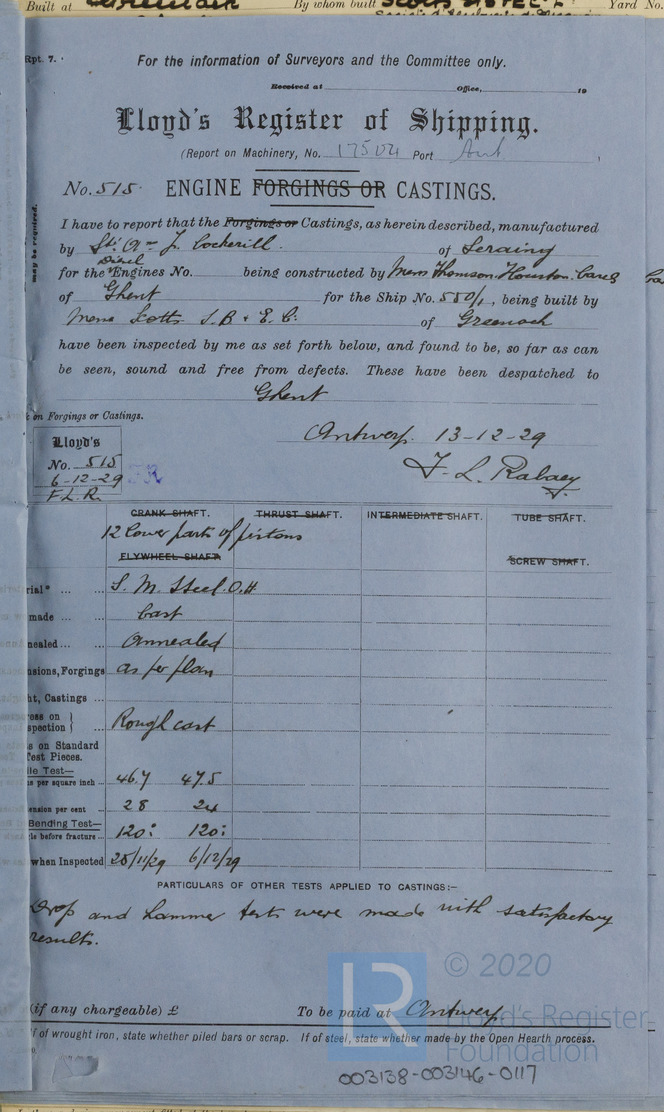 Built at Greenock By whom built Scotts' S.B. & E. Co. Yard No.
Rpt. 7.
For the information of Surveyors and the Committee only.
Received at Office, 19
Lloyd's Register of Shipping.
(Report on Machinery, No. 17504 Port Ant
No. 515. ENGINE FORGINGS OR CASTINGS.
may be required.
I have to report that the Forgings or Castings, as herein described, manufactured
by Sté. Ame J. Cockerill. of Seraing
Diesel
for the Engines No. being constructed by Mess Thomson. Houston. Carels
of Ghent for the Ship No. 550/1, being built by
Mess Scotts S. B & E. C. of Greenock
have been inspected by me as set forth below, and found to be, so far as can
be seen, sound and free from defects. These have been despatched to
Ghent
on Forgings or Castings.
Antwerp. 13-12-29
F. L. Rabaey
Lloyd's
No. 515
6-12-29
F.L.R.
FR
CRANK SHAFT. THRUST SHAFT. INTERMEDIATE SHAFT. TUBE SHAFT.
12 Lower parts of pistons
FLYWHEEL SHAFT SCREW SHAFT.
rial* ... ... S. M. Steel. O.H.
made ... ... Cast
nealed ... ... Annealed
nsions, Forgings as per plan
ht, Castings ...
ress on
spection ... Rough cast
s on Standard
Test Pieces.
ile Test—
s per square inch ... 46.7 47.5
ension per cent 28 24
Bending Test—
le before fracture ... 120° 120°
when Inspected 25/11/29 6/12/29
PARTICULARS OF OTHER TESTS APPLIED TO CASTINGS:—
Drop and hammer tests were made with satisfactory
results.
LR © 2020
(if any chargeable) £ To be paid at Antwerp
Lloyd's Register
If of wrought iron, state whether piled bars or scrap. If of steel, state whether made by the Open Hearth process.
Foundation
003138-003146-0117